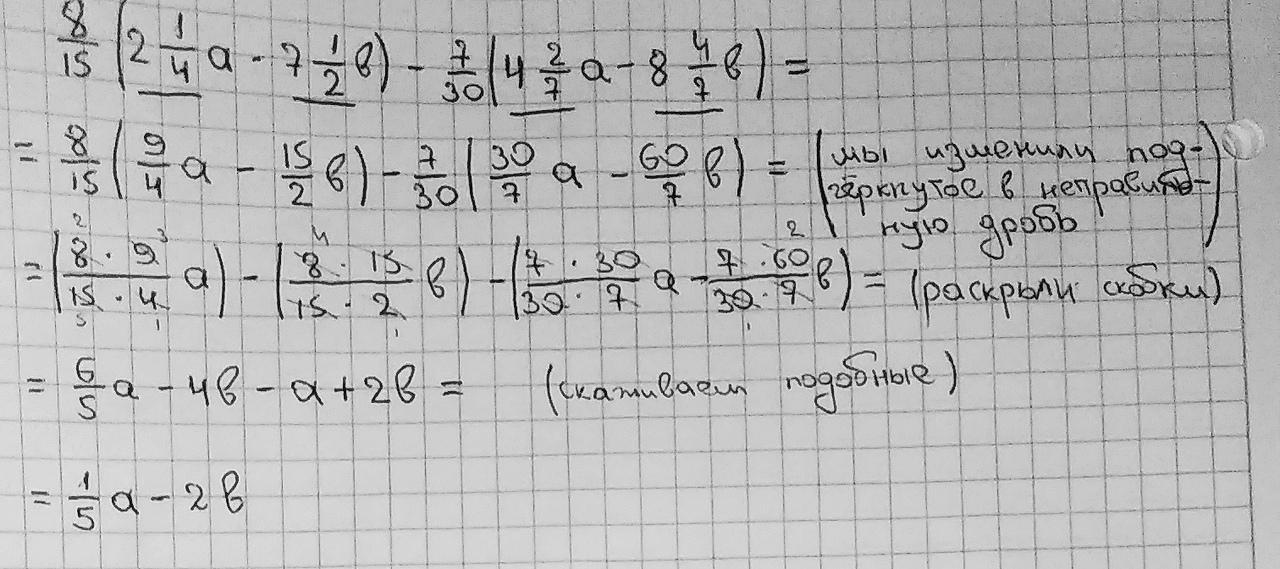 8/15 (2 1/4 a - 7 1/2 в) - 7/30 (4 2/7 a - 8 4/7 в) =
= 8/15 (9/4 a - 15/2 в) - 7/30 (30/7 a - 60/7 в) = (мы изменили под-
чёркнутое в неправиль-
ную дробь)
= (8 · 9 / 15 · 4 a) - (8 · 15 / 15 · 2 в) - (7 · 30 / 30 · 7 a - 7 · 60 / 30 · 7 в) = (раскрыли скобки)
= 6/5 a - 4в - a + 2в = (скаживаем подобные)
= 1/5 a - 2в